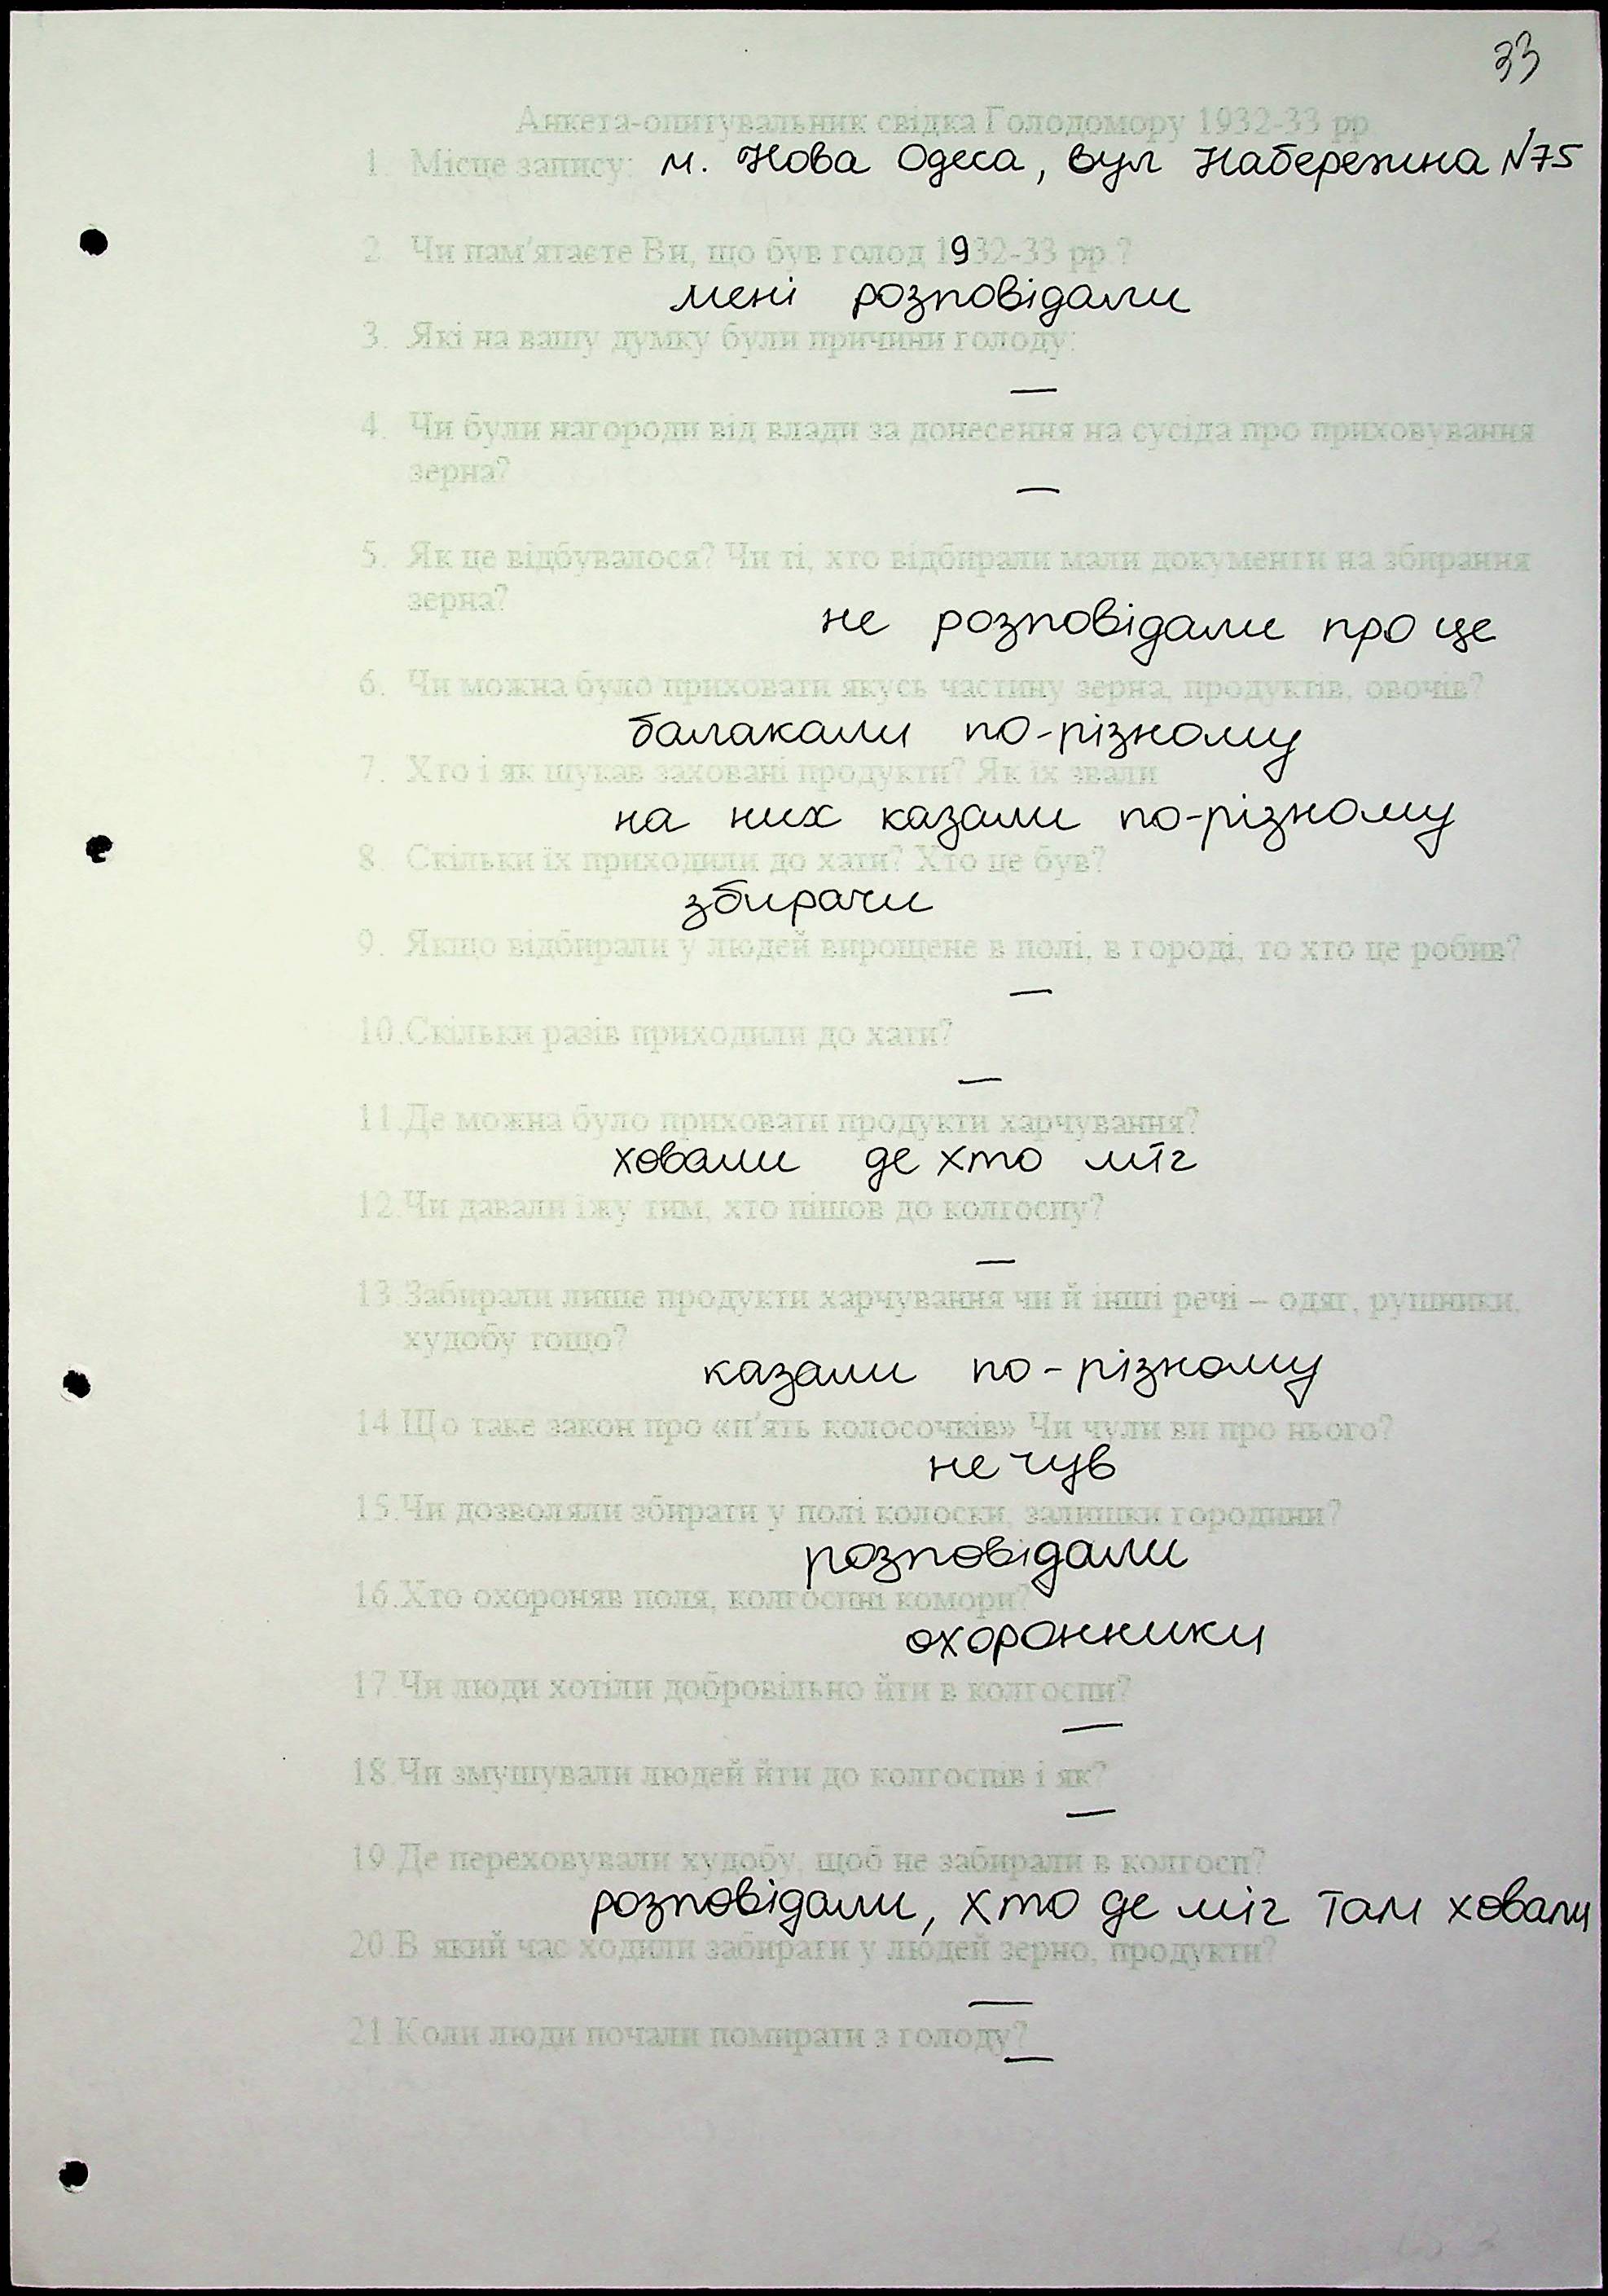 33
Анкета-опитувальник свідка Голодомору 1932-33 рр.
1. Місце запису: м. Нова Одеса, вул Набережна №75
2. Чи пам'ятаєте Ви, що був голод 1932-33 рр.?
мені розповідали
3. Які на вашу думку були причини голоду:
—
4. Чи були нагороди від влади за донесення на сусіда про приховування
зерна?
—
5. Як це відбувалося? Чи ті, хто відбирали мали документи на збирання
зерна?
не розповідали про це
6. Чи можна було приховати якусь частину зерна, продуктів, овочів?
балакали по-різному
7. Хто і як шукав заховані продукти? Як їх звали
на них казали по-різному
8. Скільки їх приходили до хати? Хто це був?
збирачи
9. Якщо відбирали у людей вирощене в полі, в городі, то хто це робив?
—
10.Скільки разів приходили до хати?
—
11.Де можна було приховати продукти харчування?
ховали де хто міг
12.Чи давали їжу тим, хто пішов до колгоспу?
—
13.Забирали лише продукти харчування чи й інші речі – одяг, рушники,
худобу тощо?
казали по-різному
14.Що таке закон про «п'ять колосочків» Чи чули ви про нього?
не чув
15.Чи дозволяли збирати у полі колоски, залишки городини?
розповідали
16.Хто охороняв поля, колгоспні комори?
охоронники
17.Чи люди хотіли добровільно йти в колгоспи?
—
18.Чи змушували людей йти до колгоспів і як?
—
19.Де переховували худобу, щоб не забирали в колгосп?
розповідали, хто де міг там ховали
20.В який час ходили забирати у людей зерно, продукти?
—
21.Коли люди почали помирати з голоду?
—